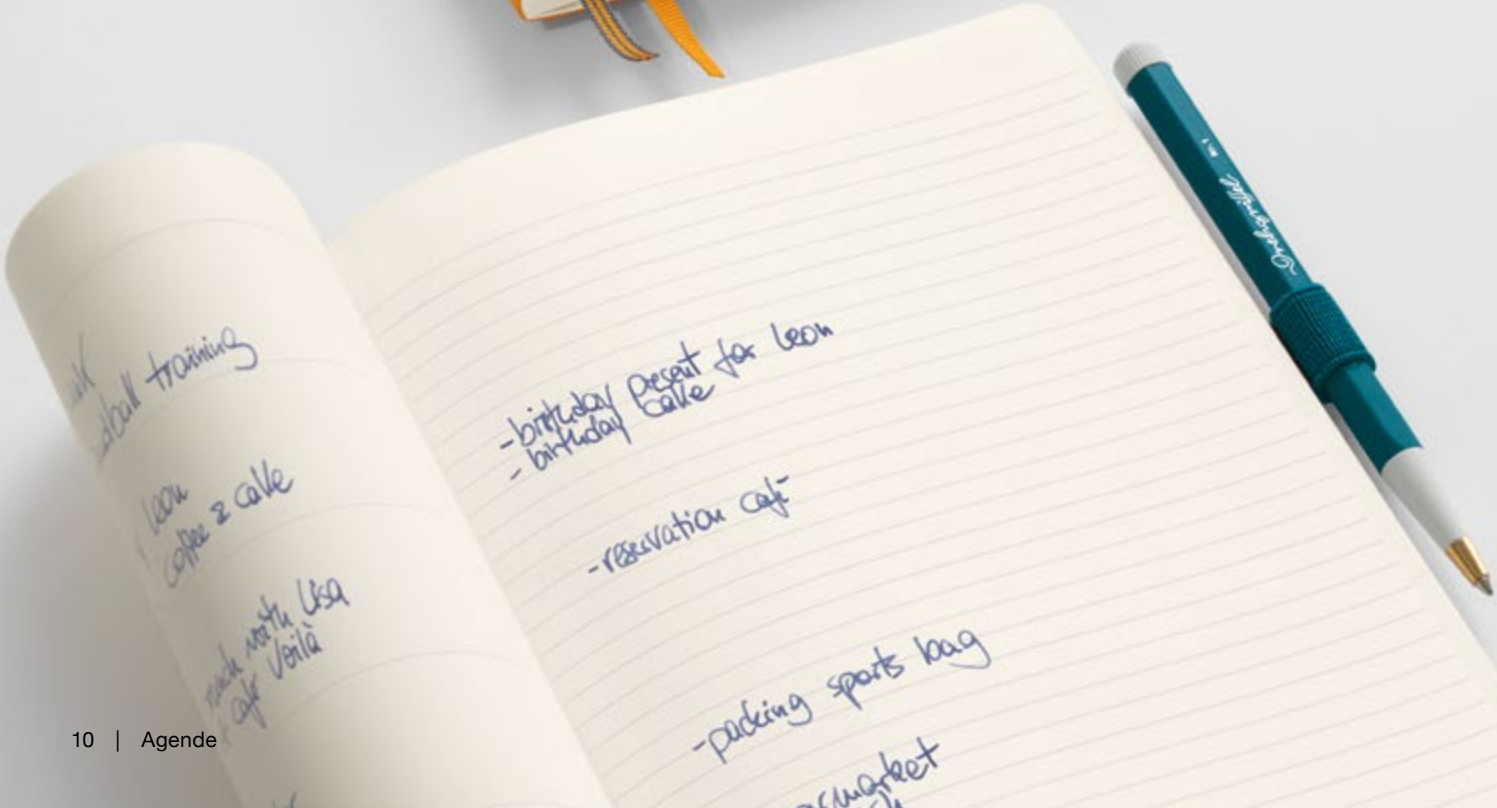 training
Leon
coffee & cake
with Lisa
café Voilà
-birthday present for Leon
- birthday cake
-reservation café
-packing sports bag
Drehgriffel
Nr. 1
10 | Agende